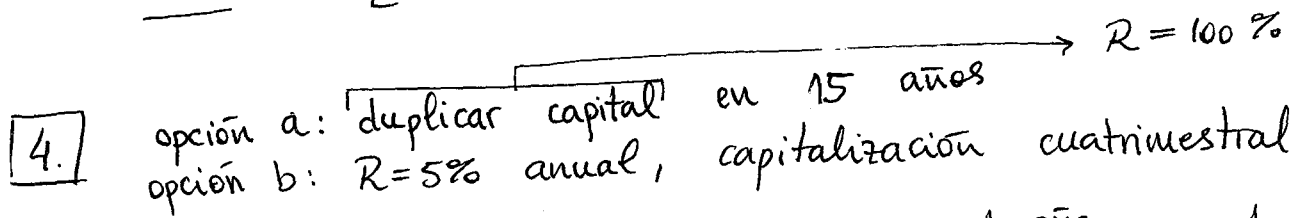 R = 100 %
4. opción a: "duplicar capital" en 15 años
opción b: R=5% anual, capitalización cuatrimestral